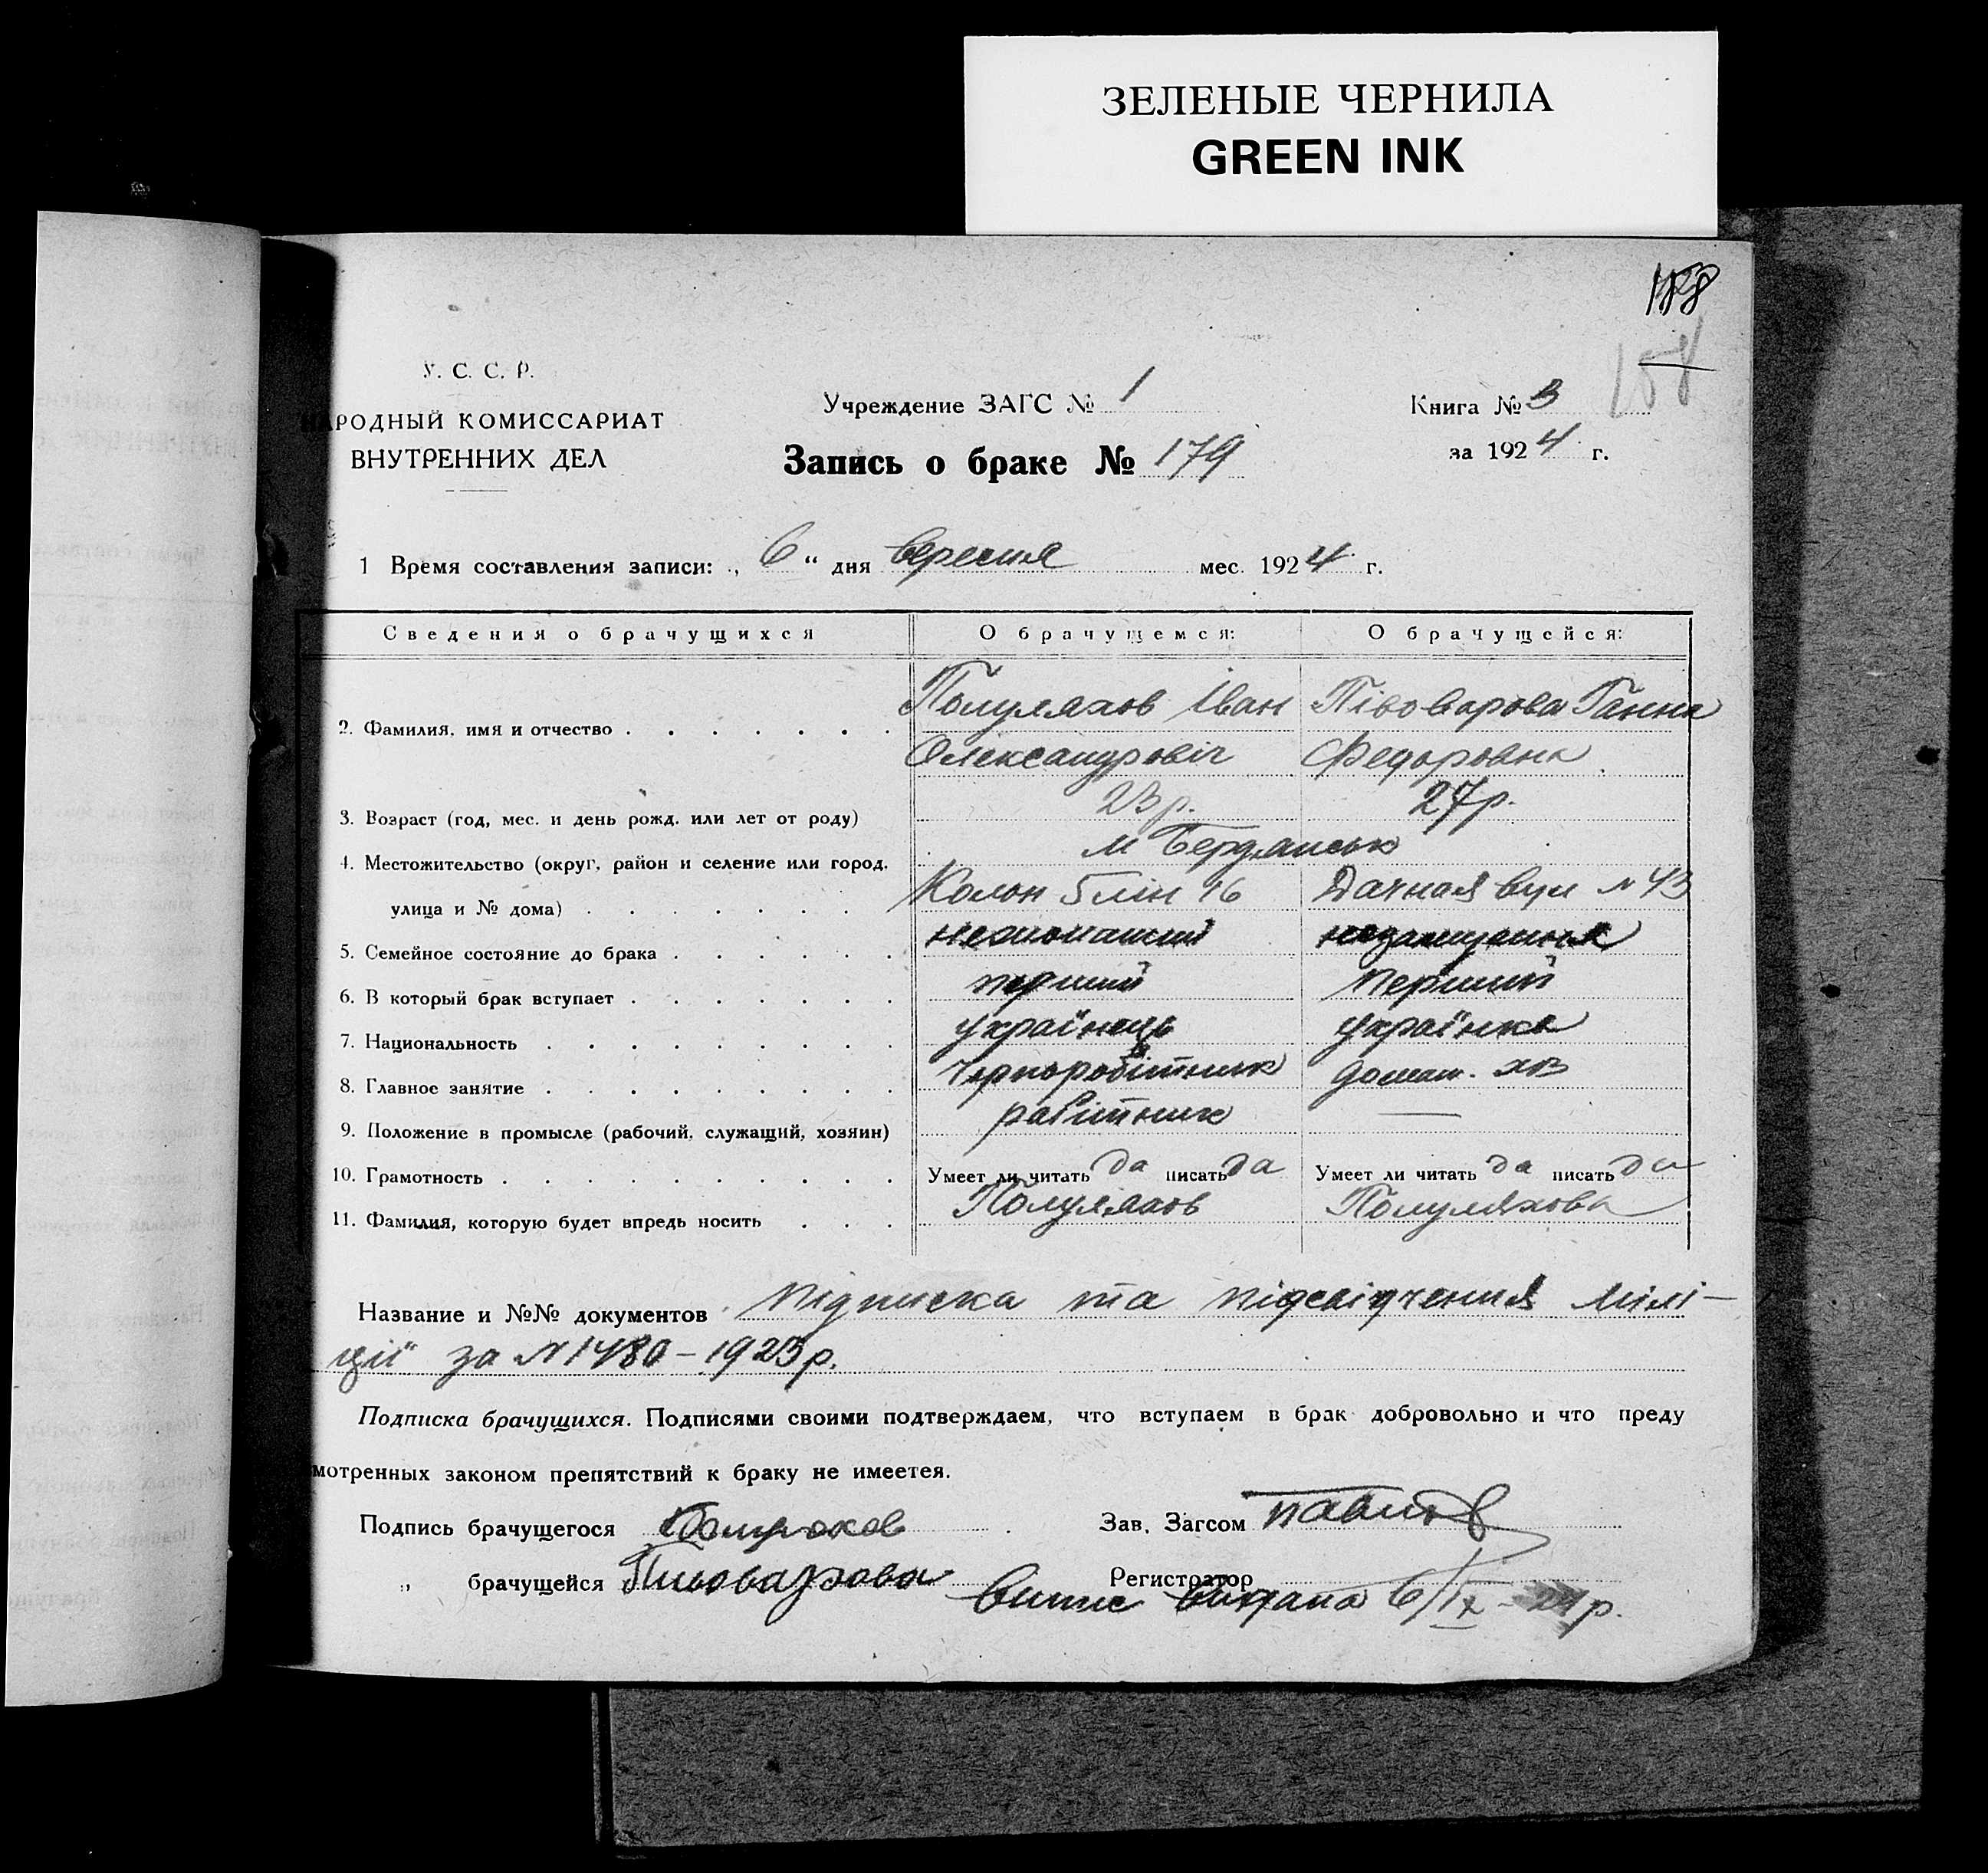 ЗЕЛЕНЫЕ ЧЕРНИЛА
GREEN INK
158
У. С. С. Р.
НАРОДНЫЙ КОМИССАРИАТ
ВНУТРЕННИХ ДЕЛ
Учреждение ЗАГС № 1
Запись о браке № 179
Книга № 3
за 1924 г.
1 Время составления записи: „ 6 “ дня вересня мес. 1924 г.
Сведения о брачущихся О брачущемся: О брачущейся:
2. Фамилия, имя и отчество Полуляхов Іван Півоварова Ганна
Олександровіч Федоровна
3. Возраст (год, мес. и день рожд. или лет от роду) 23 р. 27 р.
4. Местожительство (округ, район и селение или город, м Бердянськ
улица и № дома) Колон 5 лін 16 Дачная вул № 43
5. Семейное состояние до брака нежонатий незамужняя
6. В который брак вступает перший перший
7. Национальность українець українка
8. Главное занятие Чорноробітник домаш. хоз
9. Положение в промысле (рабочий, служащий, хозяин) робітник —
10. Грамотность Умеет ли читать да писать да Умеет ли читать да писать да
11. Фамилия, которую будет впредь носить Полуляхов Полуляхова
Название и №№ документов Підписка та підсвідчення Мілі-
ції за № 1480 – 1923 р.
Подписка брачущихся. Подписями своими подтверждаем, что вступаем в брак добровольно и что преду
мотренных законом препятствий к браку не имеется.
Подпись брачущегося Зав. Загсом Павлов
„ брачущейся Пивоварова Регистратор
Випис видана 6/IX – 24 р.